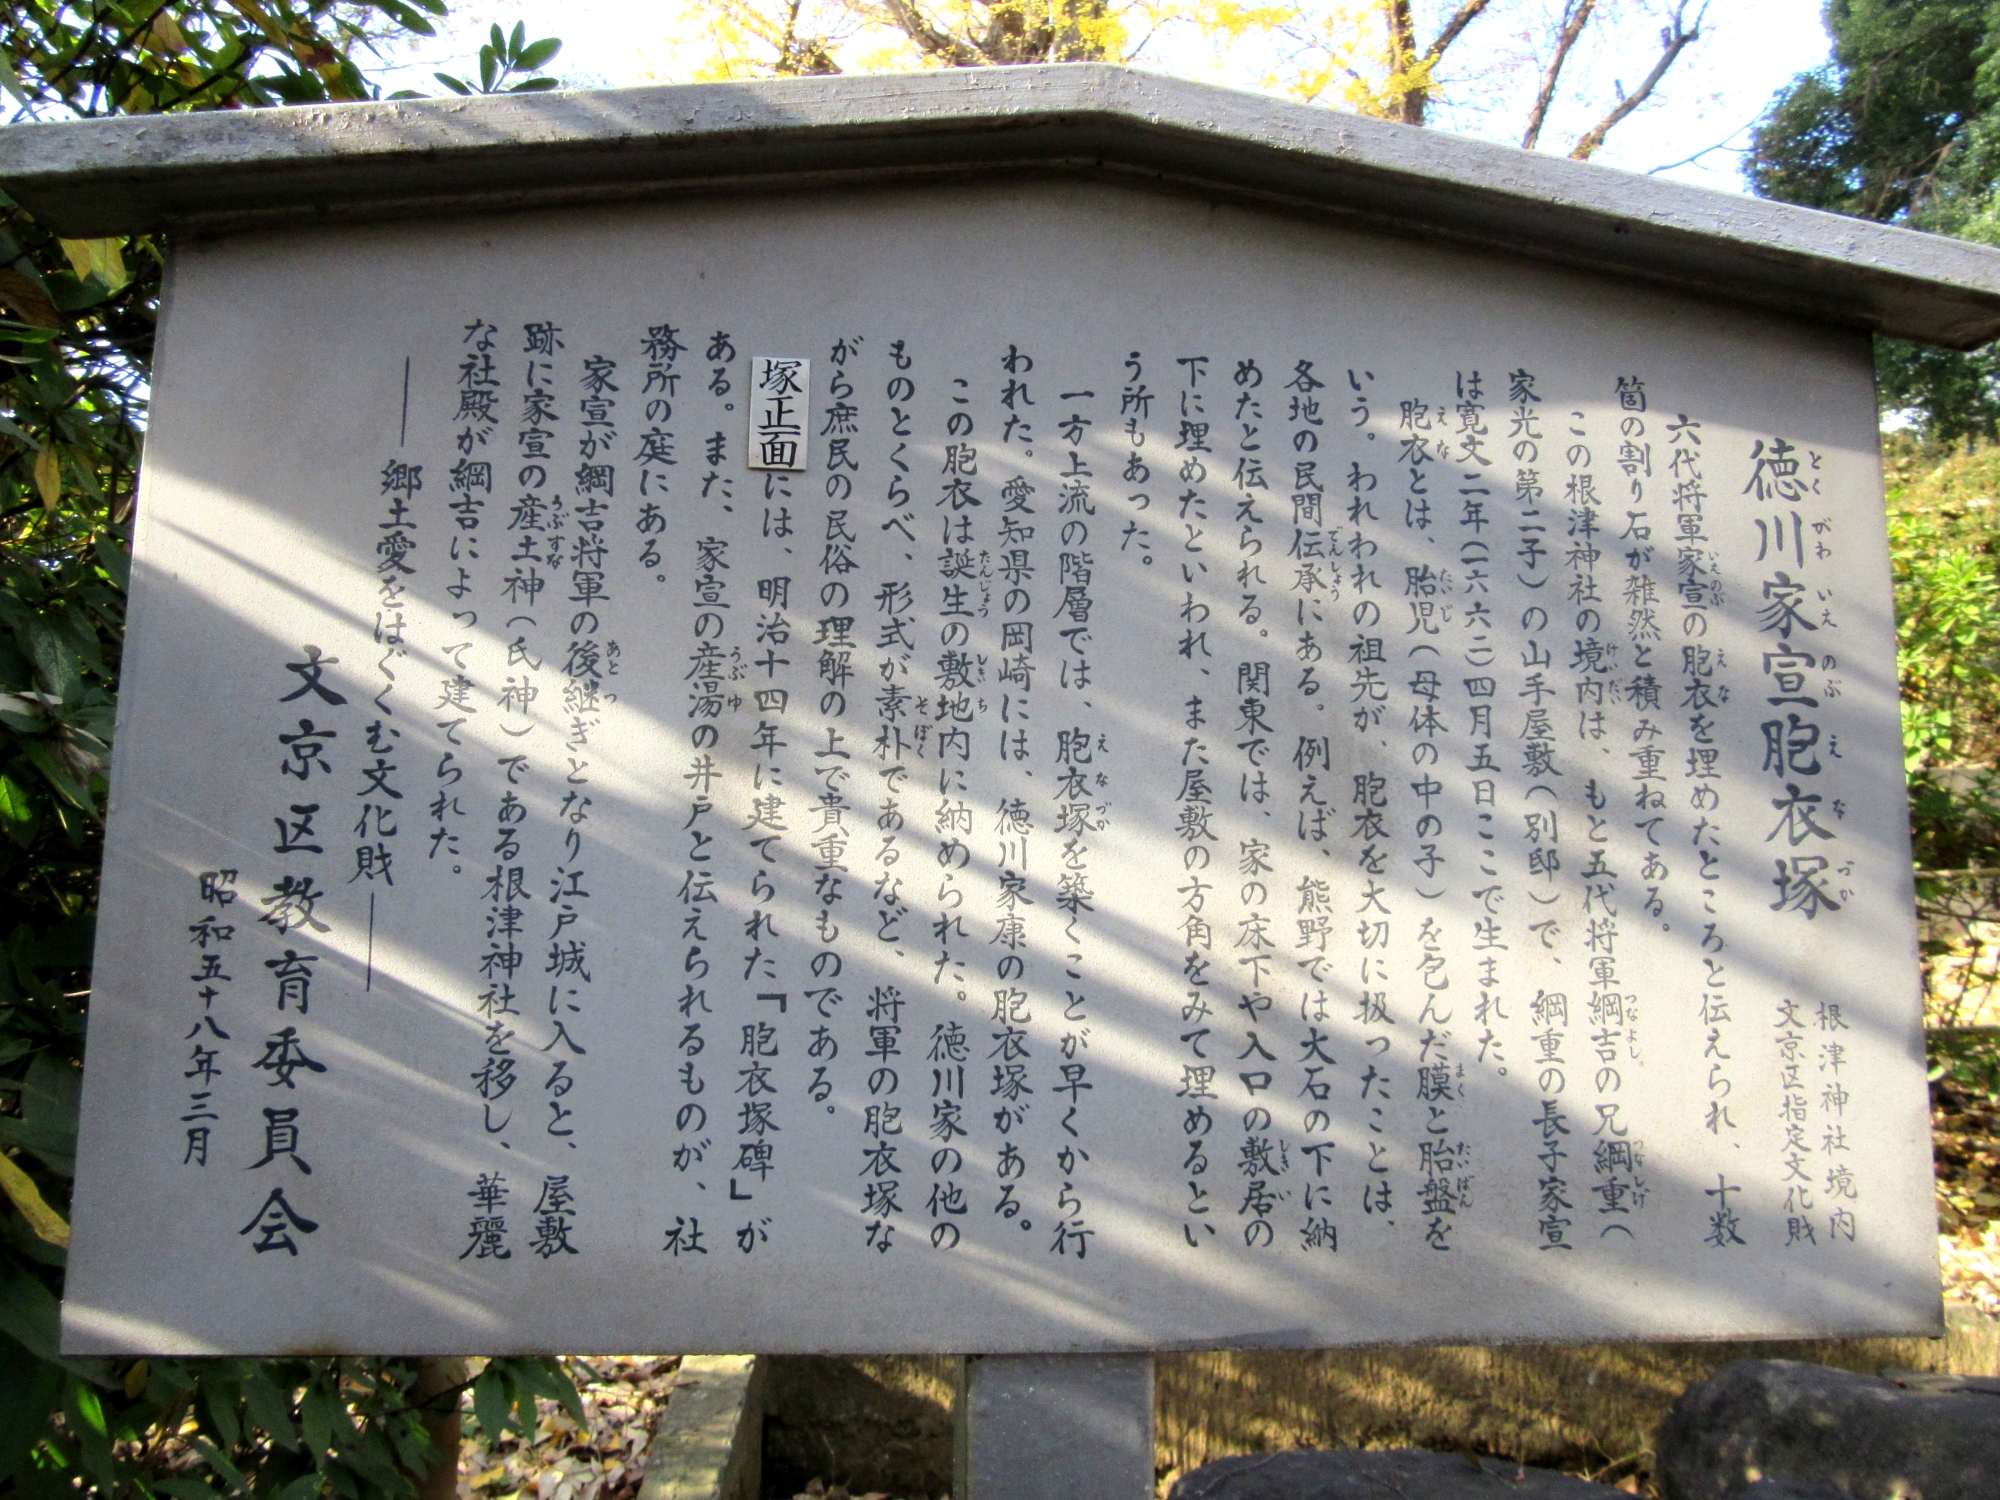 徳川家宣胞衣塚
根津神社境内
文京区指定文化財
六代将軍家宣の胞衣を埋めたところと伝えられ、十数
箇の割り石が雑然と積み重ねてある。
この根津神社の境内は、もと五代将軍綱吉の兄綱重（
家光の第二子）の山手屋敷（別邸）で、綱重の長子家宣
は寛文二年（一六六二）四月五日ここで生まれた。
胞衣とは、胎児（母体の中の子）を包んだ膜と胎盤を
いう。われわれの祖先が、胞衣を大切に扱ったことは、
各地の民間伝承にある。例えば、熊野では大石の下に納
めたと伝えられる。関東では、家の床下や入口の敷居の
下に埋めたといわれ、また屋敷の方角をみて埋めるとい
う所もあった。
一方上流の階層では、胞衣塚を築くことが早くから行
われた。愛知県の岡崎には、徳川家康の胞衣塚がある。
この胞衣は誕生の敷地内に納められた。徳川家の他の
ものとくらべ、形式が素朴であるなど、将軍の胞衣塚な
がら庶民の民俗の理解の上で貴重なものである。
塚正面には、明治十四年に建てられた「胞衣塚碑」が
ある。また、家宣の産湯の井戸と伝えられるものが、社
務所の庭にある。
家宣が綱吉将軍の後継ぎとなり江戸城に入ると、屋敷
跡に家宣の産土神（氏神）である根津神社を移し、華麗
な社殿が綱吉によって建てられた。
――郷土愛をはぐくむ文化財――
文京区教育委員会
昭和五十八年三月